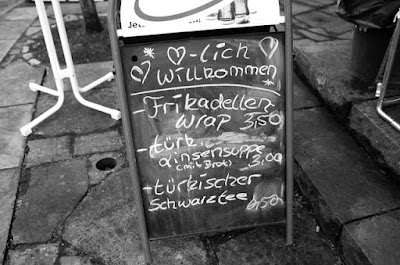 Jetz
*♡-lich♡
♡ Willkommen
-Frikadellen-
wrap 3,50
-türk.
Linsensuppe
(mit Brot) 3,00
-türkischer
Schwarztee